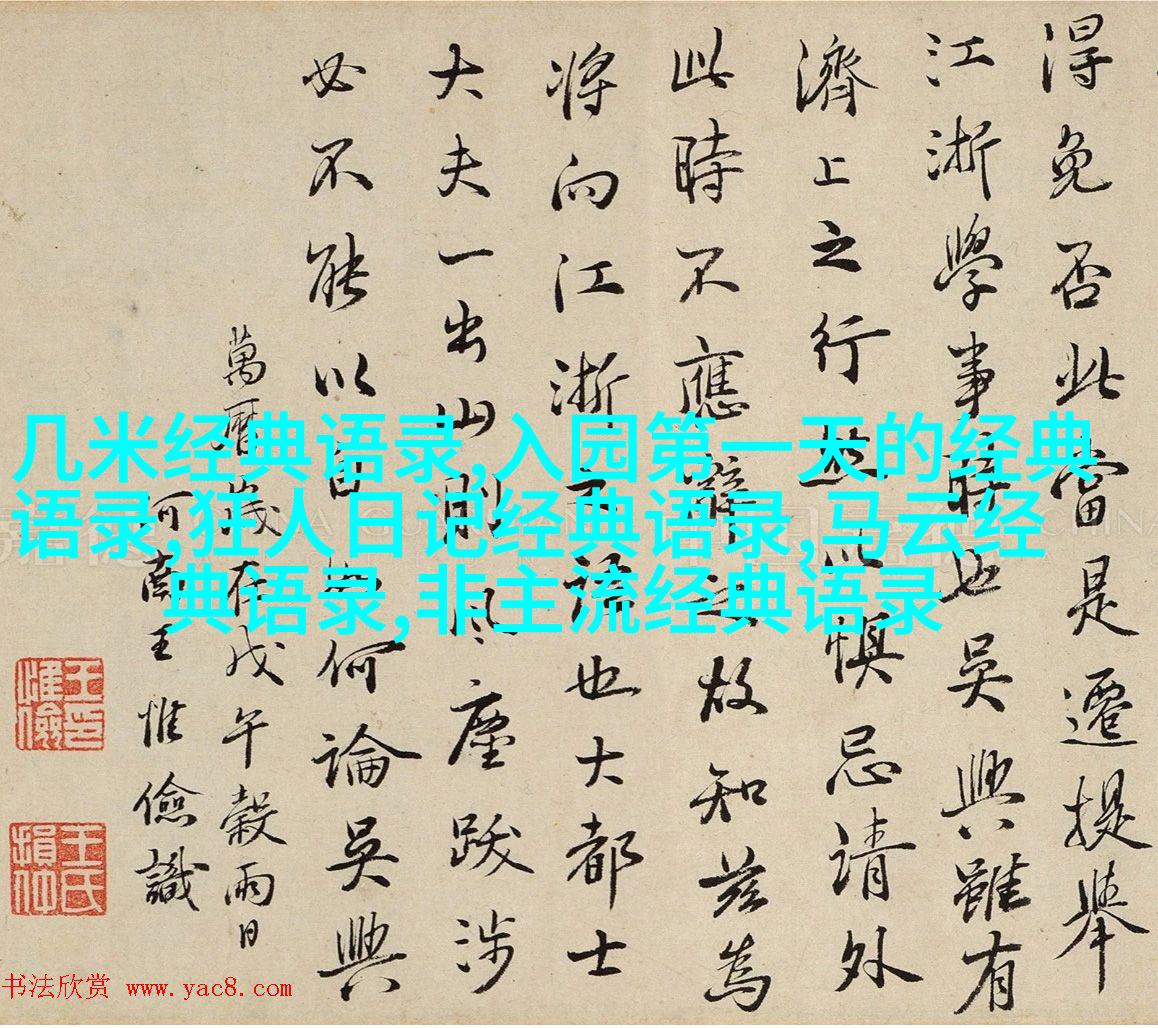 得免否此當是遷提舉
江浙學事時也吳興雖有
濟上之行以懼忌請外
此時不應辭之故知茲為
将向江浙語也大都士
大夫一出山則風塵跋涉
必不能以自如何論吳興
萬曆歲在戊午穀雨日
河南王惟儉識
王惟儉印
王氏損仲
几米经典语录,入园第一天的经典
语录,狂人日记经典语录,马云经
典语录,非主流经典语录
书法欣赏 www.yac8.com